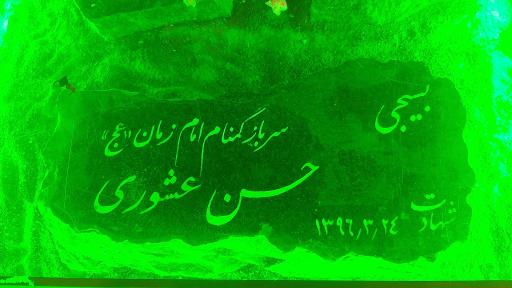 بسیجی
سرباز گمنام امام زمان «عج»
حسن عشوری
شهادت ۱۳۹۶٫۳٫۲۴